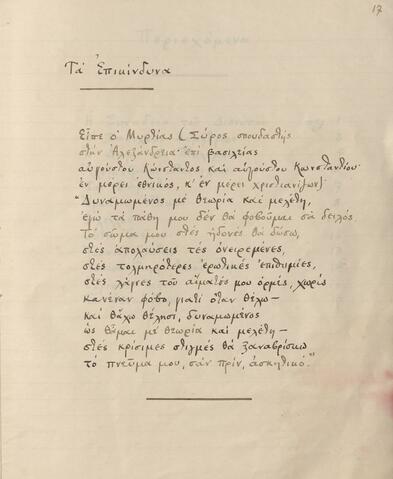 17
Τὰ Ἐπικίνδυνα
Εἶπε ὁ Μυρτίας (Σύρος σπουδαστὴς
στὴν Ἀλεξάνδρεια· ἐπὶ βασιλείας
αὐγούστου Κώνσταντος, καὶ αὐγούστου Κωνσταντίου·
ἐν μέρει ἐθνικός, κ' ἐν μέρει χριστιανίζων)·
"Δυναμωμένος μὲ θεωρία καὶ μελέτη,
ἐγὼ τὰ πάθη μου δὲν θὰ φοβοῦμαι σὰ δειλός.
Τὸ σῶμα μου στὲς ἡδονὲς θὰ δώσω,
στὲς ἀπολαύσεις τὲς ὀνειρεμένες,
στὲς τολμηρότερες ἐρωτικὲς ἐπιθυμίες,
στὲς λάγνες τοῦ αἵματός μου ὁρμές, χωρὶς
κανέναν φόβο, γιατὶ ὅταν θέλω —
καὶ θἄχω θέλησι, δυναμωμένος
ὡς θἆμαι μὲ θεωρία καὶ μελέτη —
στὲς κρίσιμες στιγμὲς θὰ ξαναβρίσκω
τὸ πνεῦμα μου, σὰν πρίν, ἀσκητικό."